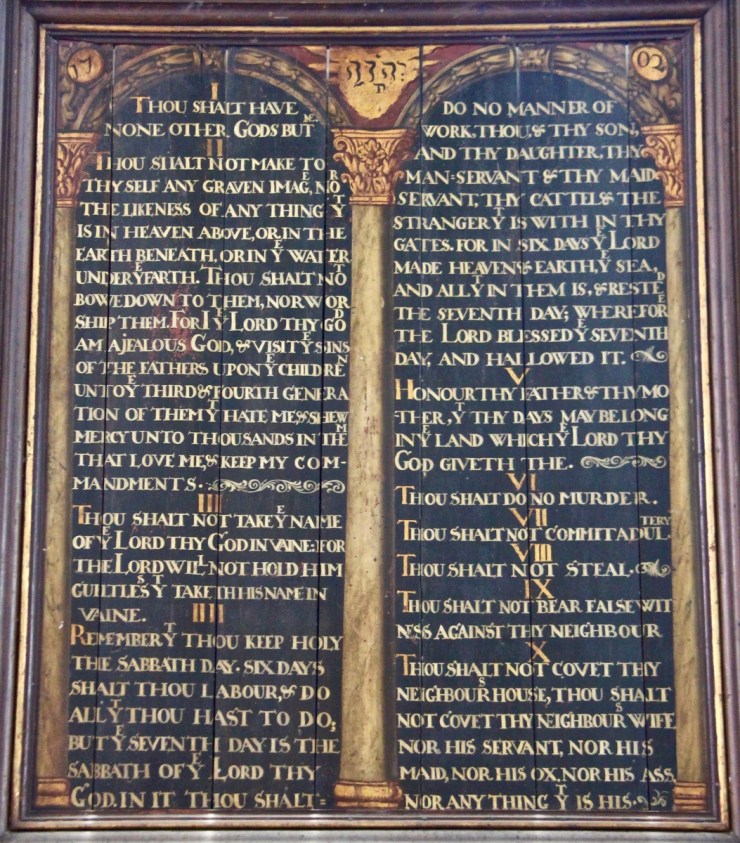 17
יהוה
02
I
THOU SHALT HAVE
NONE OTHER GODS BUT ME.
II
THOU SHALT NOT MAKE TO
THY SELF ANY GRAVEN IMAGE, NOR
THE LIKENESS OF ANY THING YT
IS IN HEAVEN ABOVE, OR IN THE
EARTH BENEATH, OR IN YE WATER
UNDER YE EARTH. THOU SHALT NOT
BOWE DOWN TO THEM, NOR WOR
SHIP THEM. FOR I YE LORD THY GOD
AM A JEALOUS GOD, & VISIT YE SINS
OF THE FATHERS UPON YE CHILDREN
UNTO YE THIRD & FOURTH GENERA
TION OF THEM YT HATE ME, & SHEW
MERCY UNTO THOUSANDS IN THEM
THAT LOVE ME, & KEEP MY COM-
MANDMENTS.
III
THOU SHALT NOT TAKE YE NAME
OF YE LORD THY GOD IN VAINE: FOR
THE LORD WILL NOT HOLD HIM
GUILTLESS YT TAKETH HIS NAME IN
VAINE.
IIII
REMEMBER YT THOU KEEP HOLY
THE SABBATH DAY. SIX DAYS
SHALT THOU LABOUR, & DO
ALL YT THOU HAST TO DO;
BUT YE SEVENTH DAY IS THE
SABBATH OF YE LORD THY
GOD. IN IT THOU SHALT=
DO NO MANNER OF
WORK, THOU, & THY SON,
AND THY DAUGHTER, THY
MAN=SERVANT & THY MAID
SERVANT, THY CATTEL & THE
STRANGER YT IS WITH IN THY
GATES. FOR IN SIX DAYS YE LORD
MADE HEAVEN & EARTH, YE SEA,
AND ALL YT IN THEM IS, & RESTED
THE SEVENTH DAY; WHEREFORE
THE LORD BLESSED YE SEVENTH
DAY, AND HALLOWED IT.
V
HONOUR THY FATHER & THY MO
THER, YT THY DAYS MAY BE LONG
IN YE LAND WHICH YE LORD THY
GOD GIVETH THE.
VI
THOU SHALT DO NO MURDER.
VII
THOU SHALT NOT COMMIT ADULTERY.
VIII
THOU SHALT NOT STEAL.
IX
THOU SHALT NOT BEAR FALSE WIT
NESS AGAINST THY NEIGHBOUR
X
THOU SHALT NOT COVET THY
NEIGHBOURS HOUSE, THOU SHALT
NOT COVET THY NEIGHBOURS WIFE
NOR HIS SERVANT, NOR HIS
MAID, NOR HIS OX, NOR HIS ASS,
NOR ANY THING YT IS HIS.